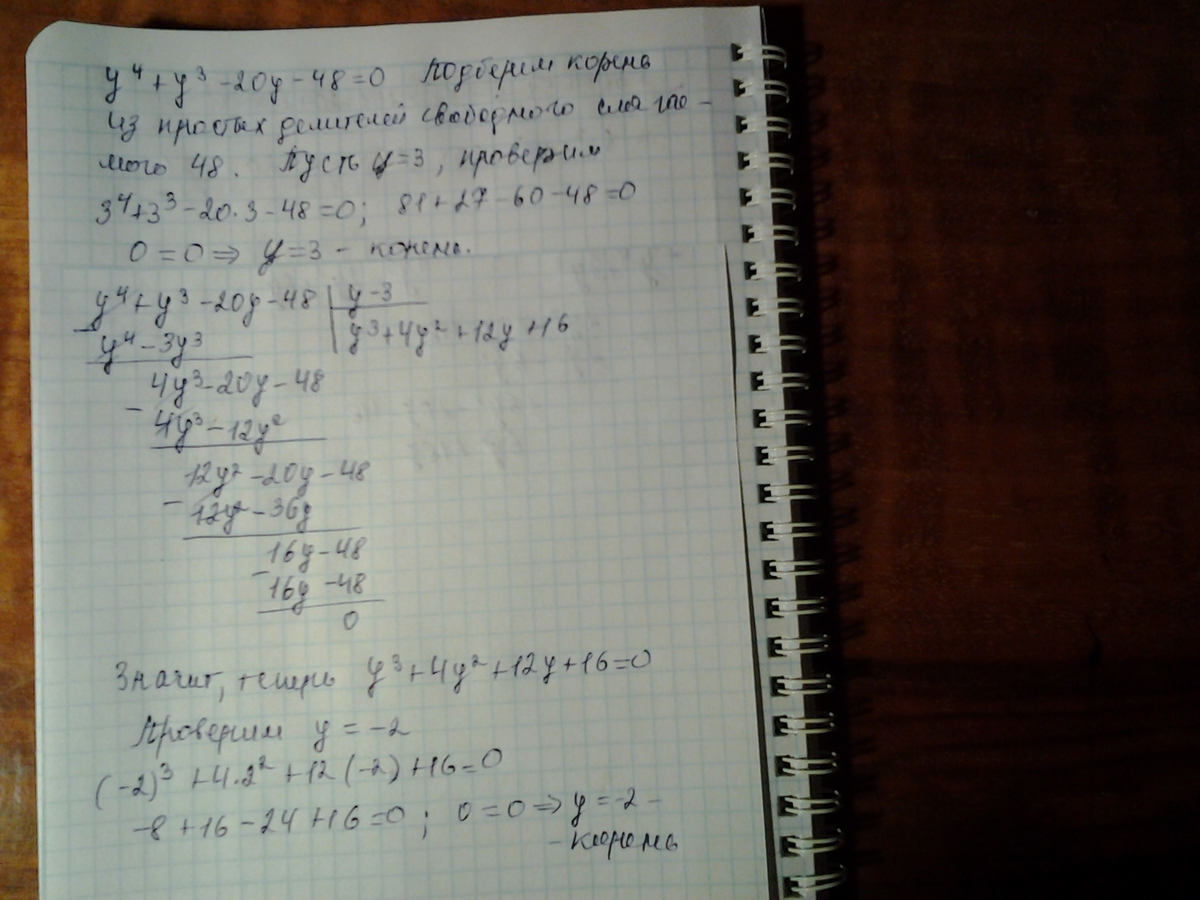 y⁴+y³-20y-48=0 Подберем корень
из простых делителей свободного слагае-
мого 48. Пусть y=3, проверим
3⁴+3³-20·3-48=0; 81+27-60-48=0
0=0⇒ y=3 - корень.
y⁴+y³-20y-48 | y-3
- y⁴-3y³ | y³+4y²+12y+16
4y³-20y-48
- 4y³-12y²
12y²-20y-48
- 12y²-36y
16y-48
- 16y-48
0
Значит, теперь y³+4y²+12y+16=0
Проверим y=-2
(-2)³+4·2²+12(-2)+16=0
-8+16-24+16=0; 0=0⇒y=-2-
- корень